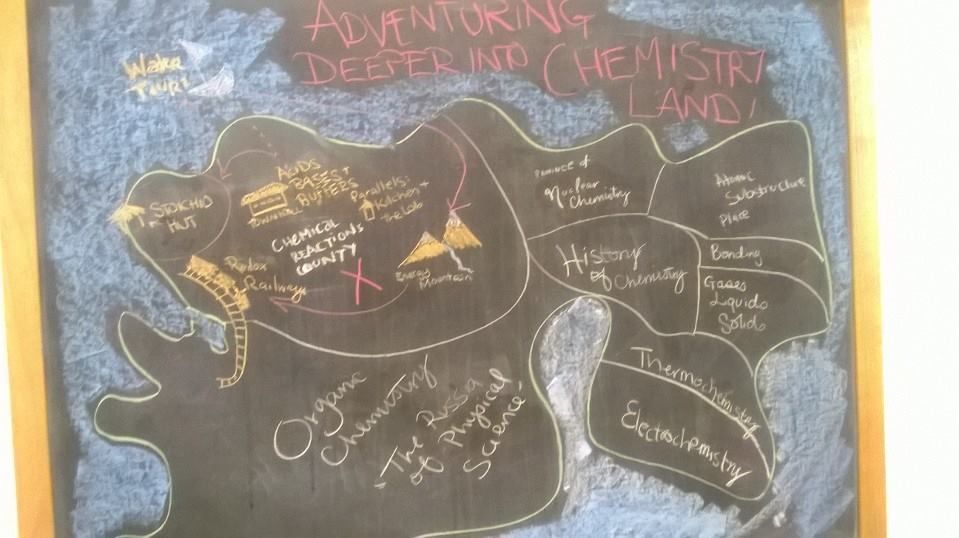 ADVENTURING
DEEPER INTO CHEMISTRY
LAND!
STOICHIO
HUT
ACIDS
BASES +
BUFFERS
TOWNHALL
Parallels:
Kitchen +
the Lab
CHEMICAL
REACTIONS
COUNTY
X
Energy
Mountain
Redox
Railways
PROVINCE of
Nuclear Chemistry
Atomic
Substructure
Place
History
of Chemistry
Bonding
Gases
Liquids
Solids
Thermochemistry
Electrochemistry
Organic
Chemistry
"The Russia
of Physical
Science"